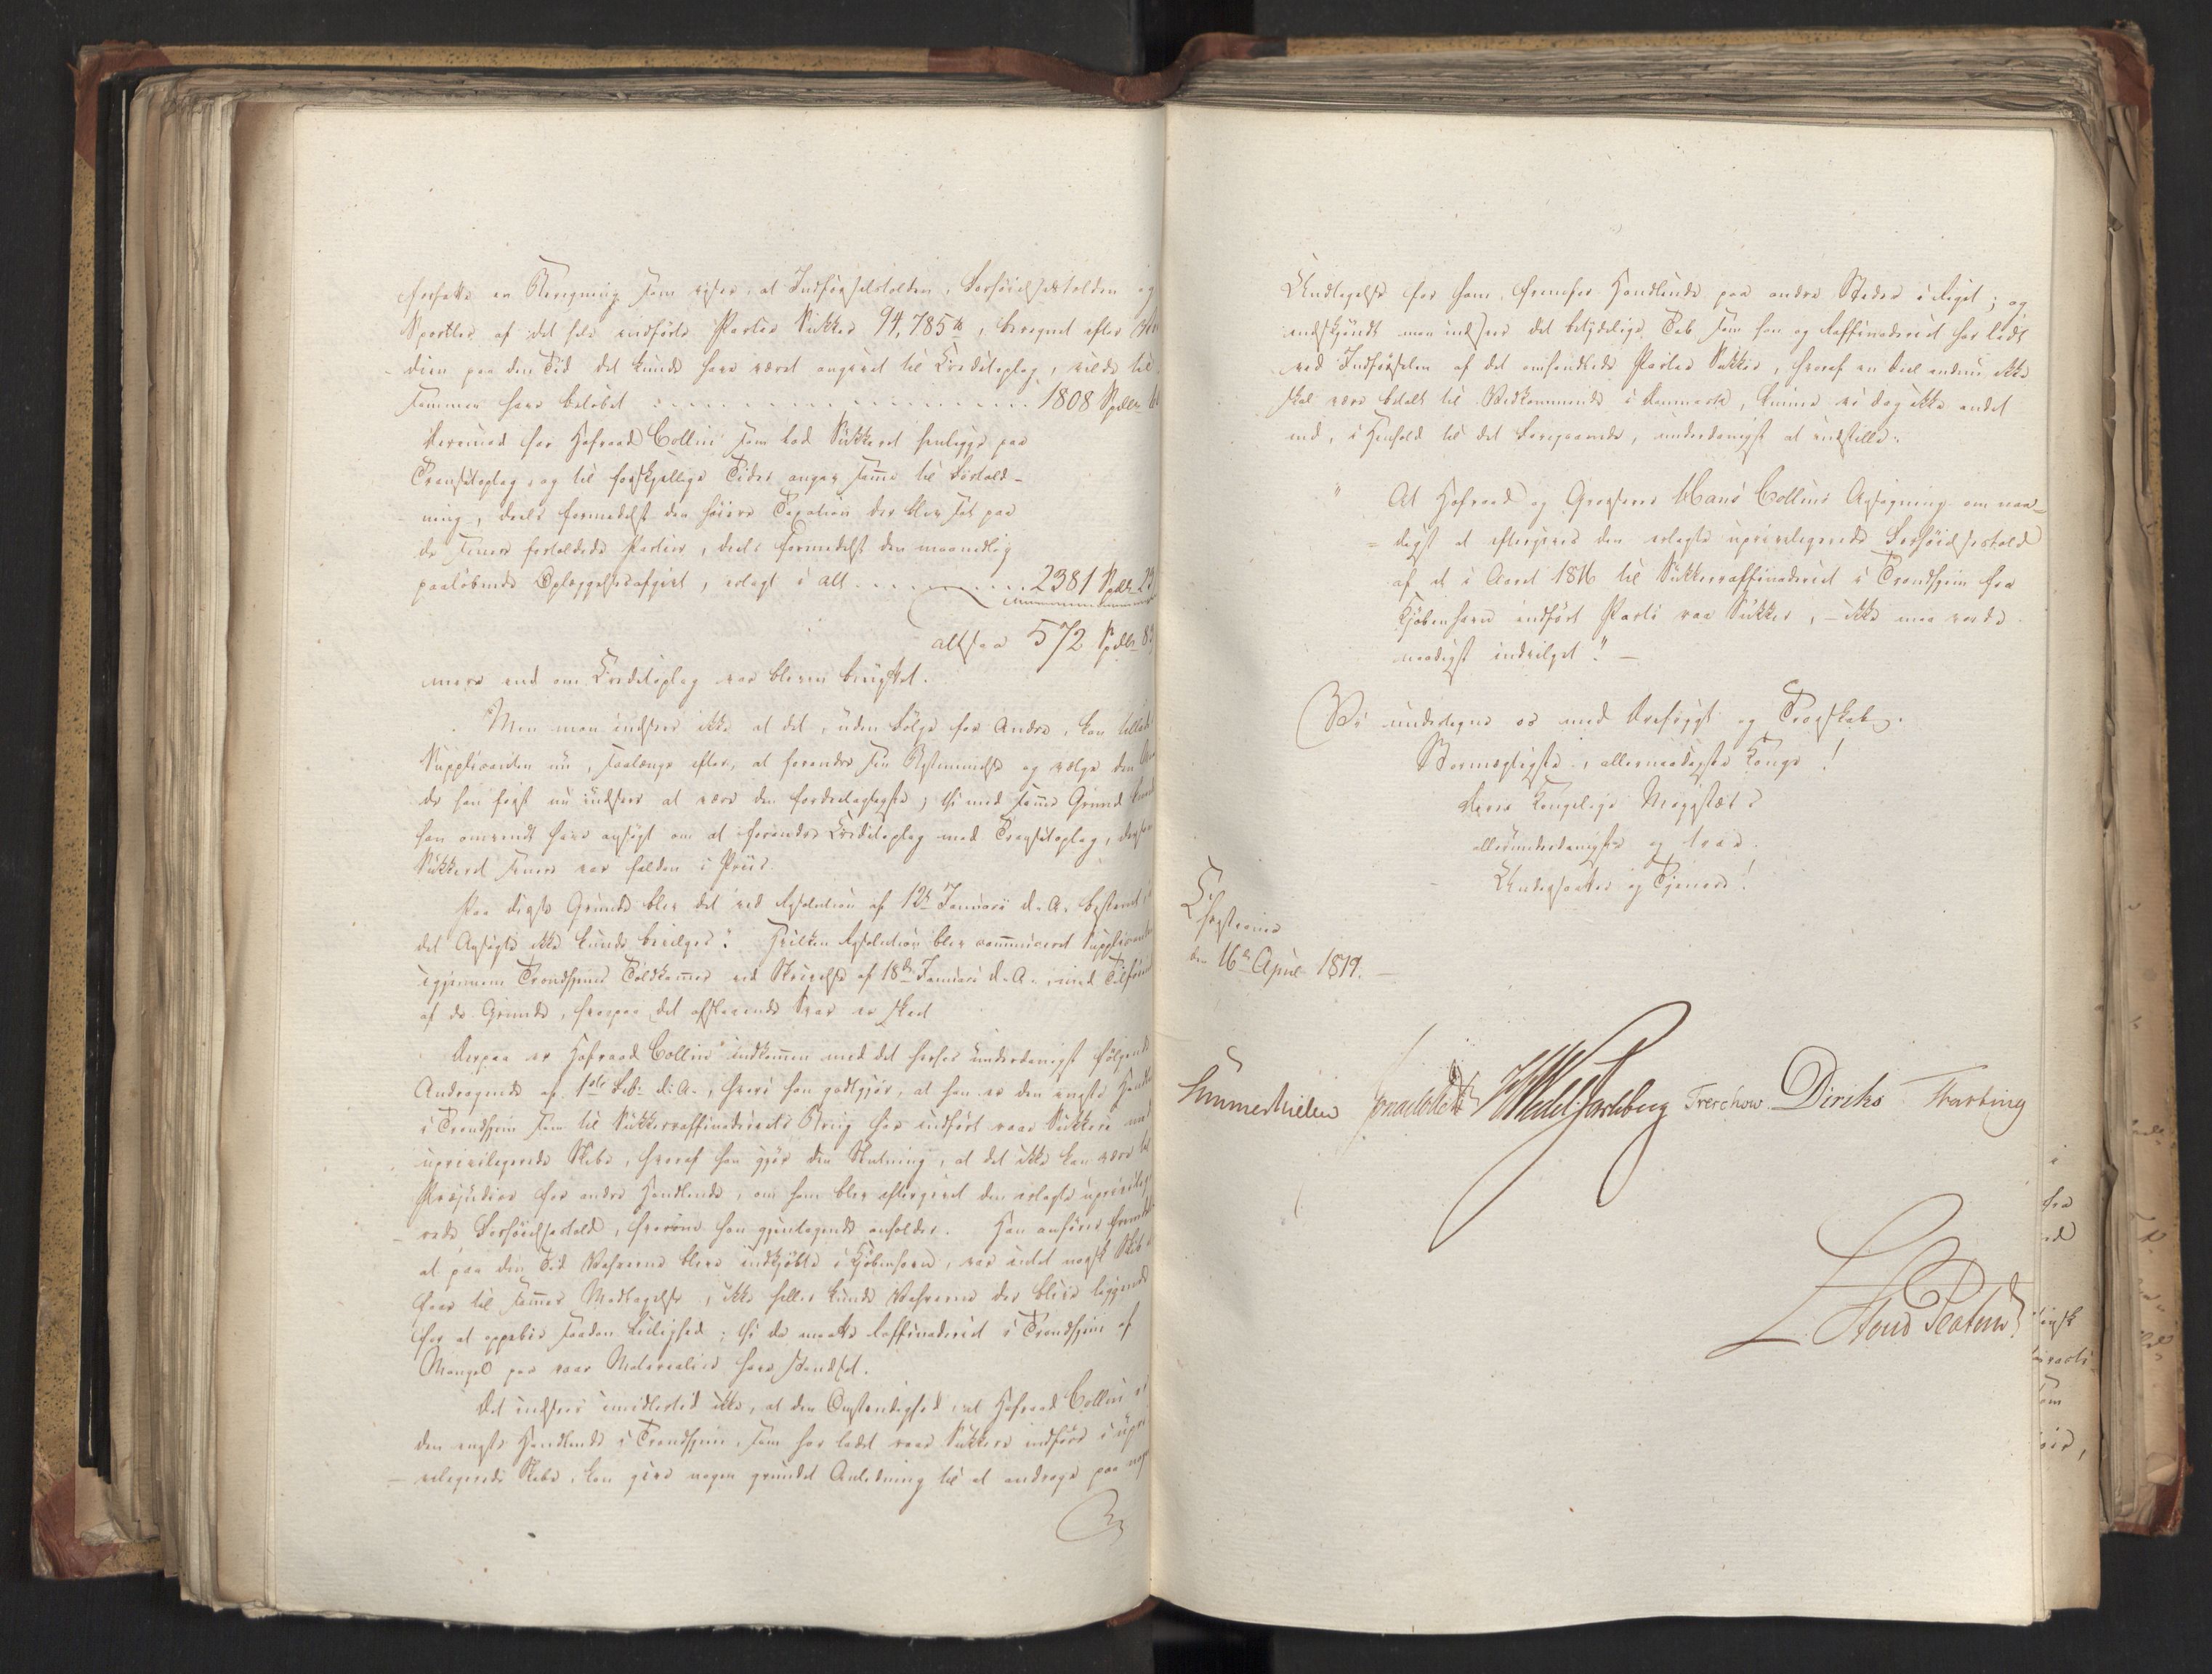 forfattet en Beregning som viser, at Indførselstolden, Forhøielsestolden og
Sportler af det hele indførte Partie Sukker 94,785 ℔, beregnet efter
dien paa den Tid det kunde have været angivet til Creditoplag, vilde til
sammen have beløbet . . . . . 1808 Spdlr
Derimod har Hofraad Collin som lod Sukkeret henligge paa
Transitoplag, og til forskjellige Tider angav samme til Fortold-
ning, deels formedelst den høiere Taxation der blev sat paa
de senere fortoldede Partier, deels formedelst den maanedlig
paaløbende Oplæggelsesafgivt, erlagt i alt . . . . . 2381 Spdlr 23
altsaa 572 Spdlr 83
mere end om Creditoplag var bleven benyttet.
Men man indseer ikke at det, uden Følge for Andre, kan tillades
Supplicanten nu, saalænge efter, at forandre sin Bestemmelse og vælge den
de han først nu indseer at være den fordeelagtigste; thi med samme Grund kunde
han omvendt have ansøgt om at forandre Creditoplag med Transitoplag, dersom
Sukkeret senere var falden i Priis.
Paa disse Grunde blev det ved Resolution af 12te Januarii d. A. bestemt,
det Ansøgte ikke kunde bevilges". Hvilken Resolution blev communiceret Supplicanten
igjennem Trondhjems Toldkammer ved Skrivelse af 18de Januari d. A., med Tilføiende
af de Grunde, hvorpaa det afslaaende Svar er skeet
Derpaa er Hofraad Collin indkommen med det herhos underdanigst følgende
Andragende af 1ste Feb. d. A., hvori han godtgjør, at han er den eneste Handlende
i Trondhjem som til Sukkerraffinaderiets Brug har indført raae Sukkere med
uprivilegerede Skibe, hvoraf han gjør den Slutning, at det ikke kan være til
Præjudice for andre Handlende, om ham blev eftergivet den erlagte uprivilege-
rede Forhøielsestold, hvorom han gjentagende anholder. Han anfører fremdeles
at paa den Tid Vahrerne bleve indkjøbte i Kjøbenhavn, var intet norsk Skib
der til sammes Modtagelse, ikke heller kunde Vahrerne der blive liggende
for at oppebie saadan Leilighed; thi da maatte Raffinaderiet i Trondhjem af
Mangel paa raae Materialier have standset.
Det indsees imidlertid ikke, at den Omstændighed, at Hofraad Collin er
den eneste Handlende i Trondhjem, som har ladet raae Sukkere indføre i upri-
vilegerede Skibe, kan give nogen grundet Anledning til at andrage paa nogen
Undtagelse for ham, fremfor Handlende paa andre Steder i Riget; og
endskjøndt man indseer det betydelige Tab som han og Raffinaderiet har lidt
ved Indførselen af det omhandlede Partie Sukker, hvoraf en Deel endnu ikke
skal være betalt til Vedkommende i Danmark, kunne vi dog ikke andet
end, i Henhold til det Foregaaende, underdanigst at indstille:
"At Hofraad og Grosserer Hans Collins Ansøgning om naa-
digst at eftergives den erlagte uprivilegerede Forhøielsestold
af et i Aaret 1816 til Sukkerraffinaderiet i Trondhjem fra
Kjøbenhavn indført Parti raae Sukker, – ikke maa vorde
naadigst indvilget". –
Vi undertegne os med Ærefrygt og Troeskab.
Stormægtigste, allernaadigste Konge!
Deres Kongelige Majestæts
allerunderdanigste og troe
Undersaatter og Tjenere!
Christiania
den 16de April 1819. –
Sommerhielm Jonas Collett HWedel Jarlsberg Treschow Diriks Fasting